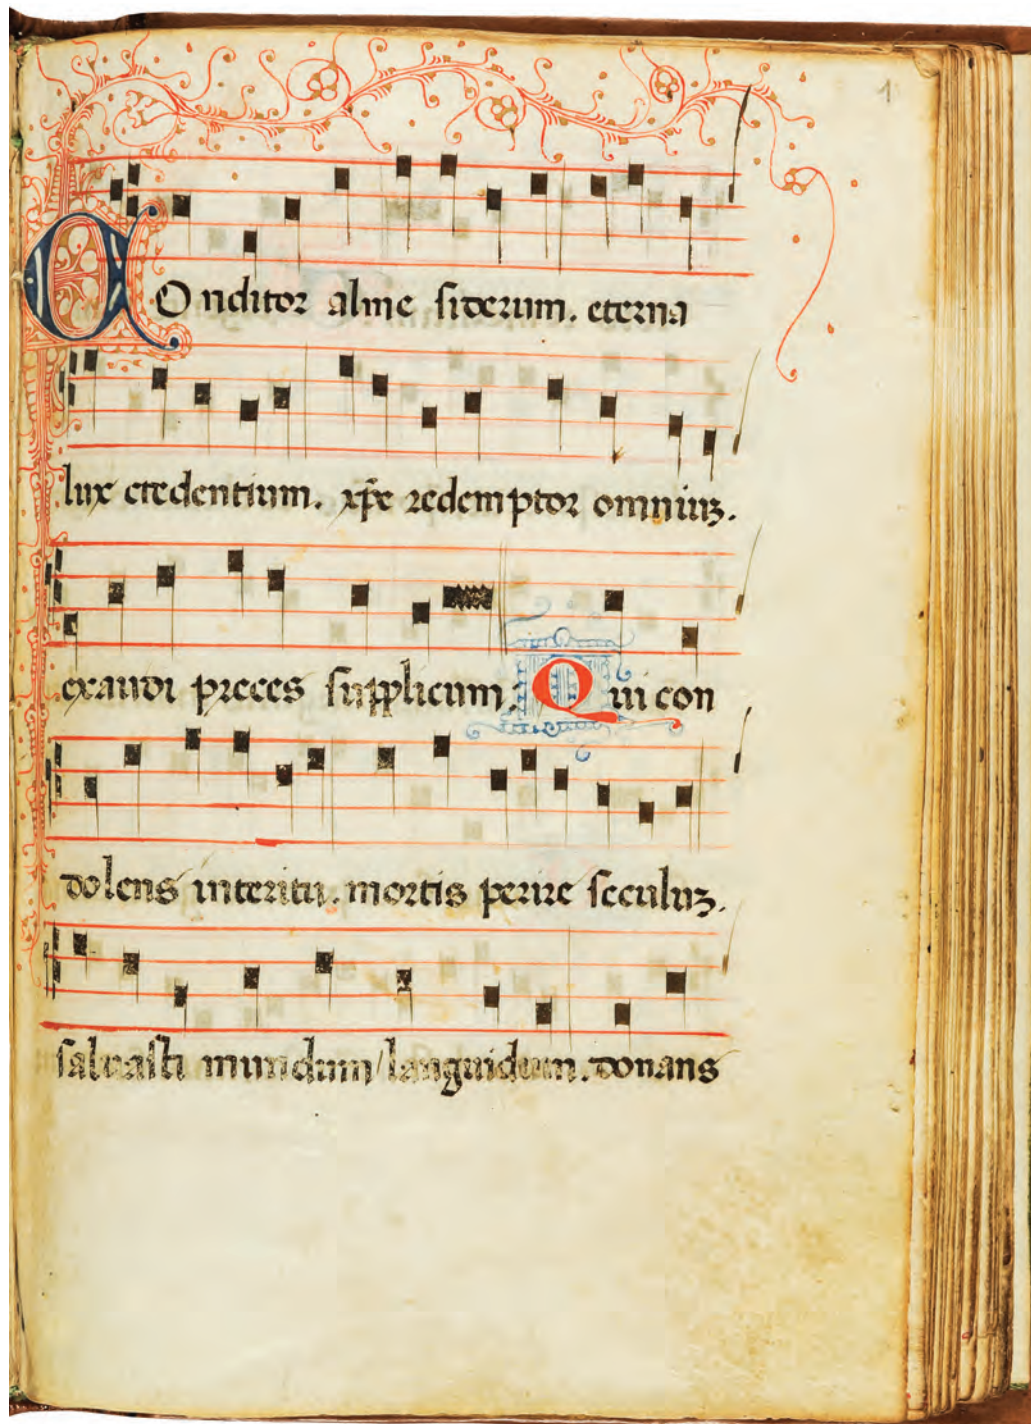 1
COnditor alme siderum. eterna
lux credentium. xp̄e redemptor omniuꝫ.
exaudi preces supplicum; Qui con
dolens interitu. mortis perire seculuꝫ.
salvasti mundum/languidum. donans